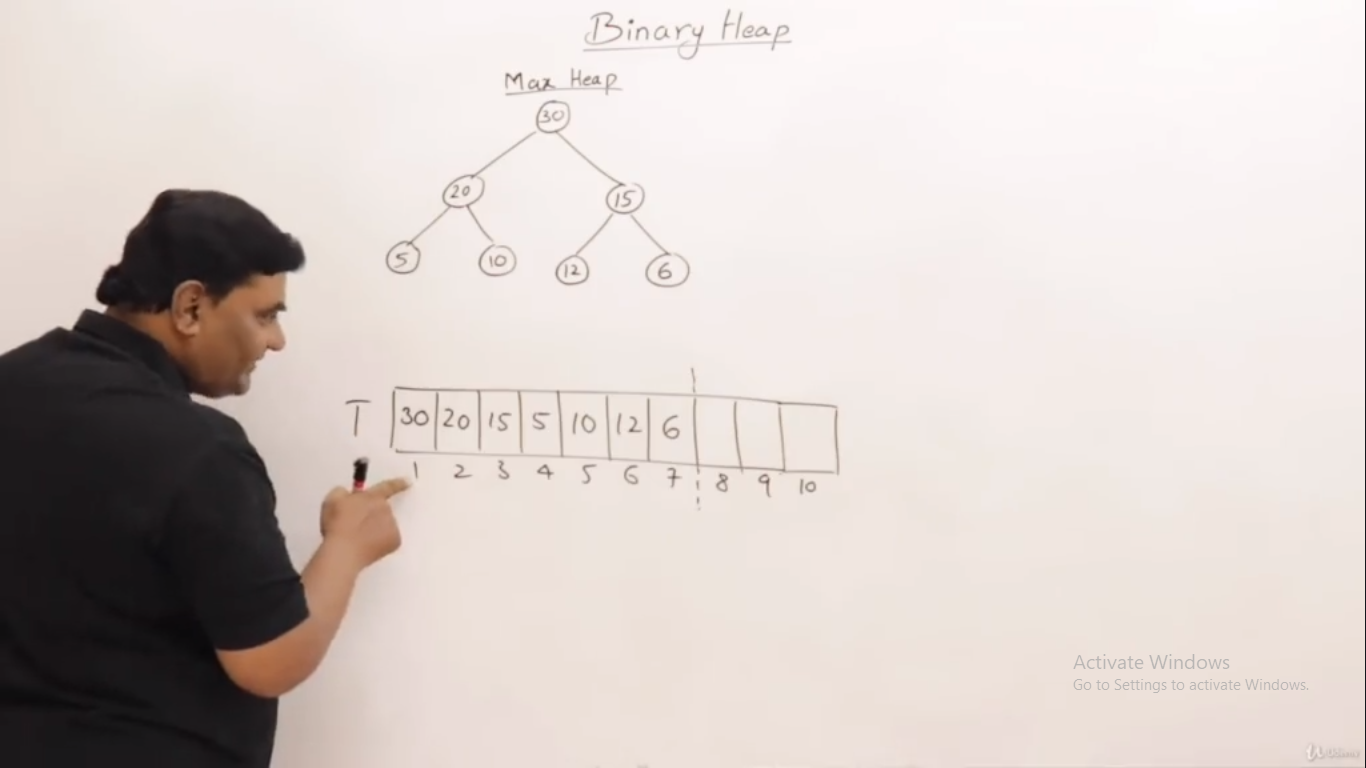 Binary Heap
Max Heap
30
20 15
5 10 12 6
T 30 20 15 5 10 12 6
1 2 3 4 5 6 7 8 9 10
Activate Windows
Go to Settings to activate Windows.
Udemy